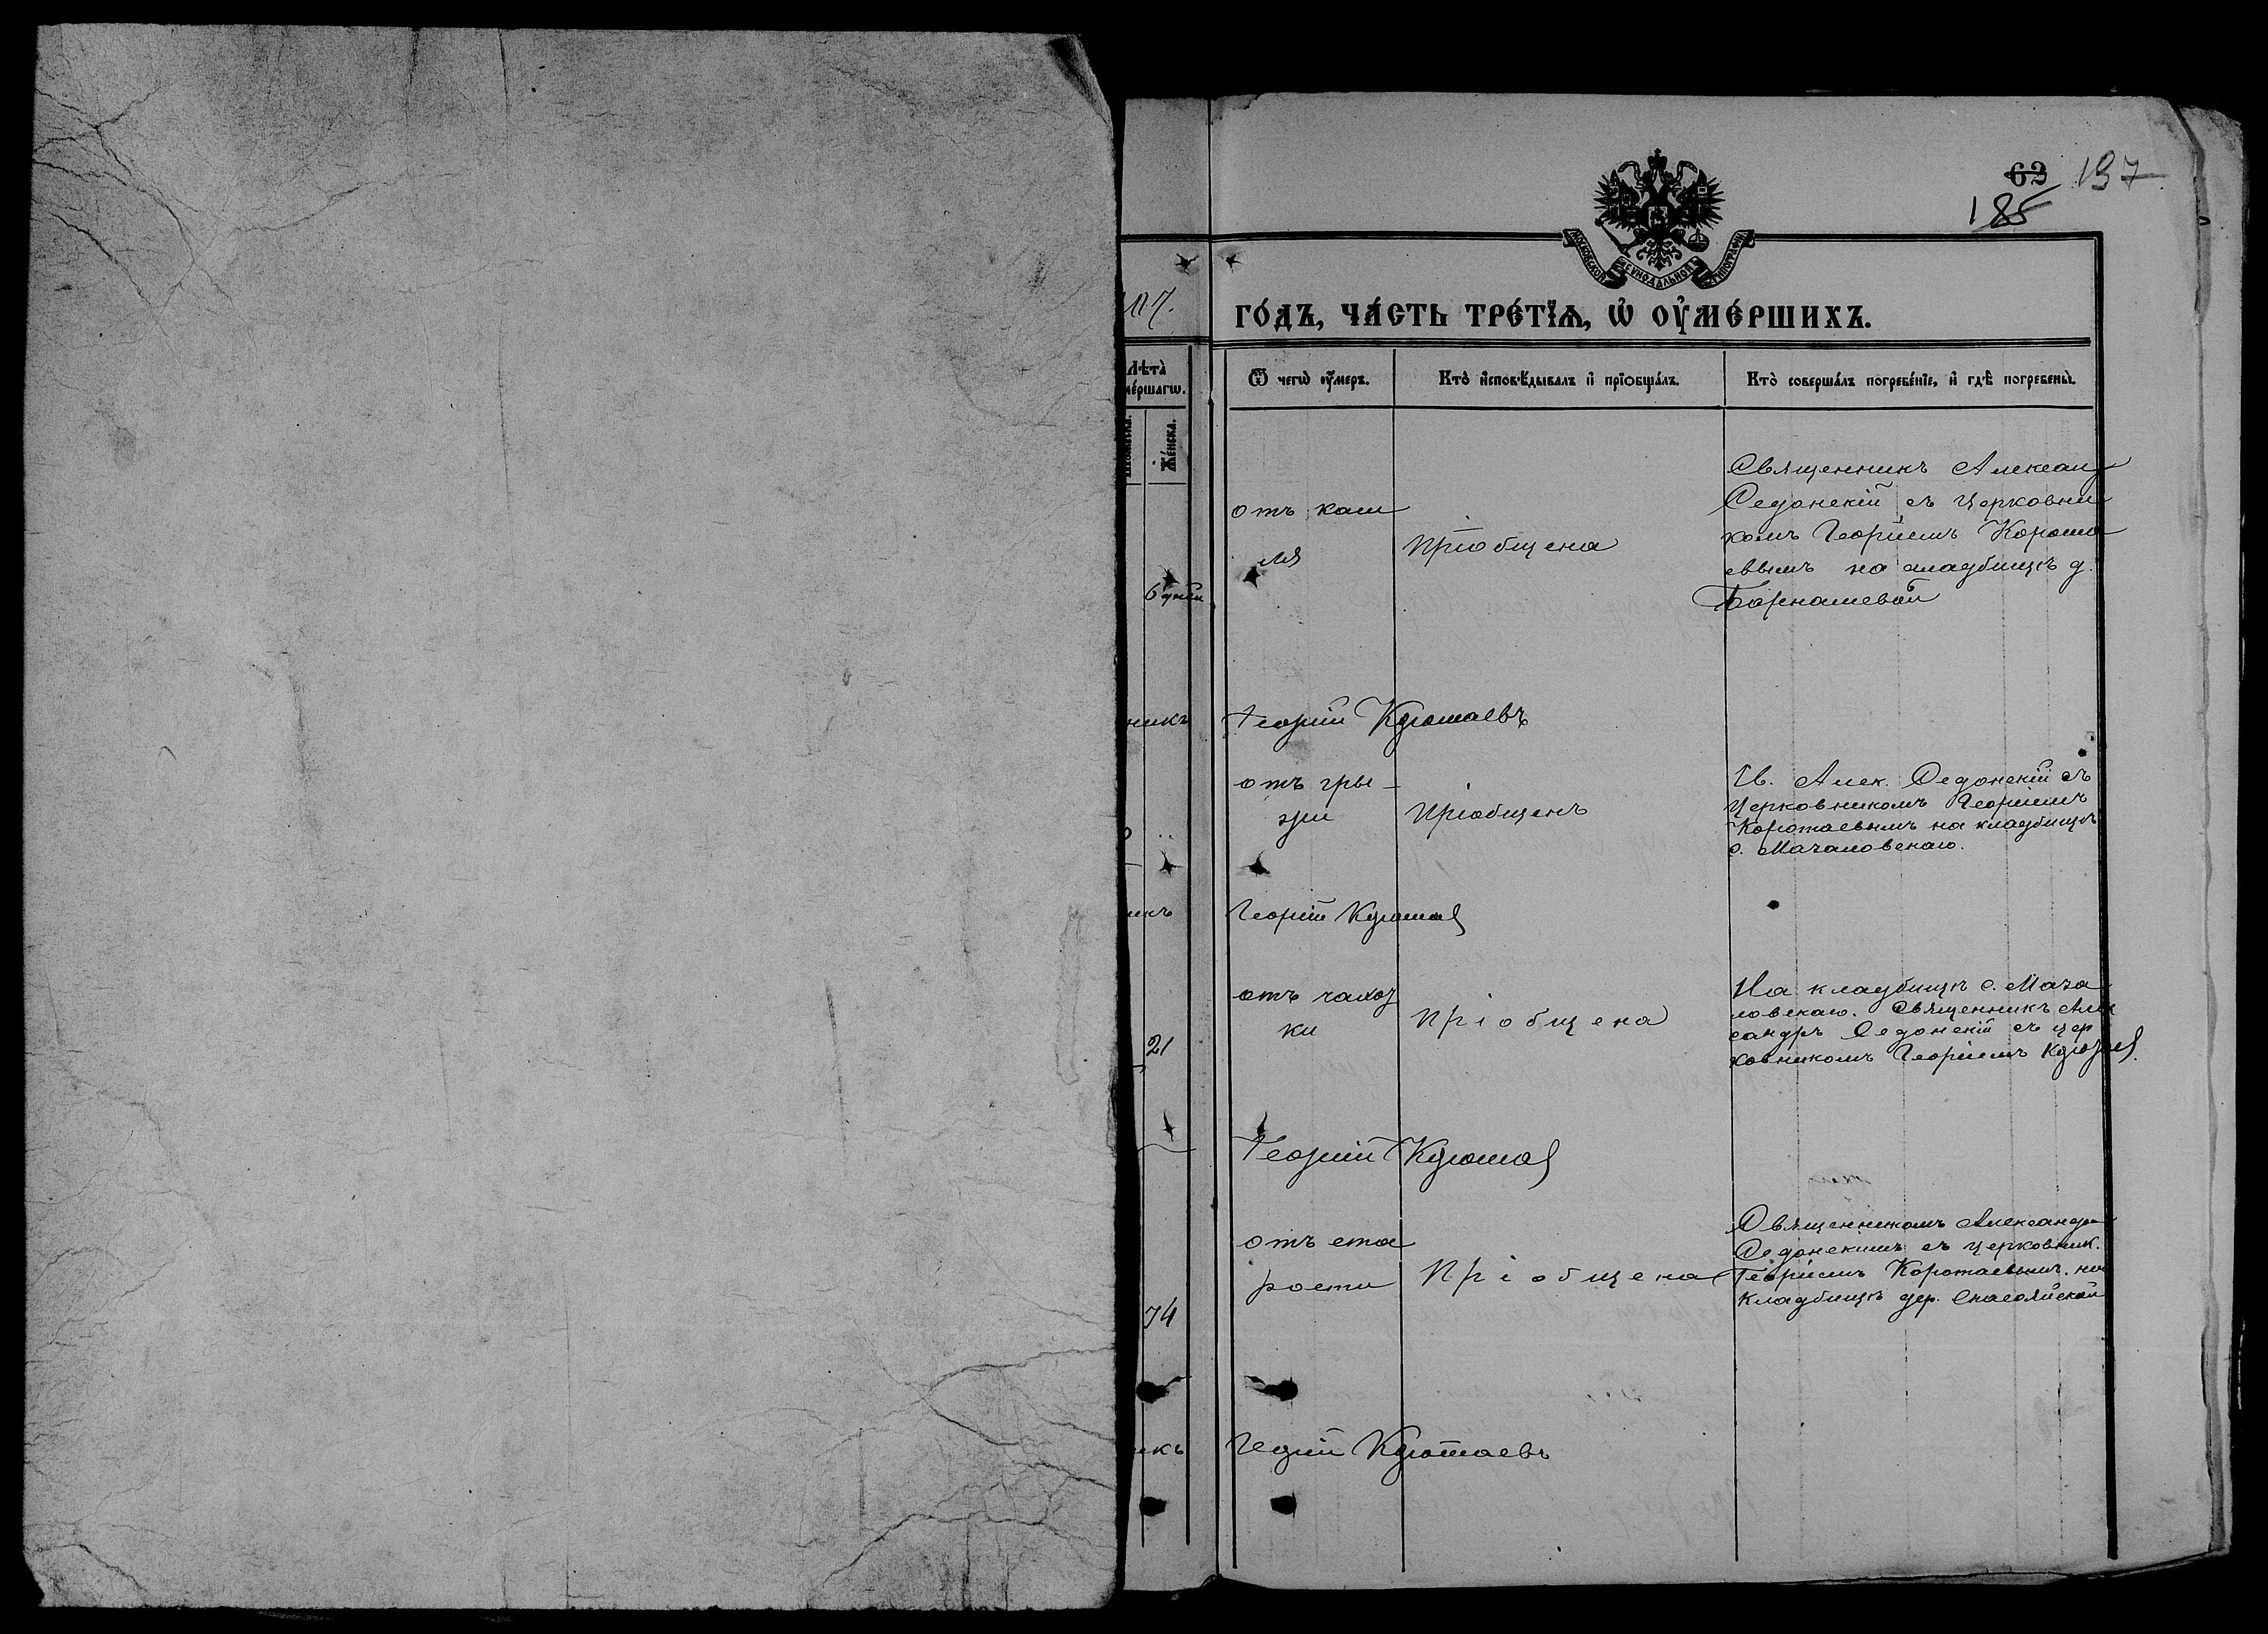 62 197
185
МОСКОВСКОЙ СУНОДАЛЬНОЙ ТИПОГРАФІИ
ГО́ДЪ, ЧА́СТЬ ТРЕ́ТЇѦ, Ѡ҆ ОУ҆МЕ́РШИХЪ.
Лѣта̀
Же́нска.
Ѿ чегѡ̀ оу҆́меръ.
Кто̀ и҆сповѣ́дывалъ и҆ прїѡбща́лъ.
Кто̀ соверша́лъ погребе́нїе, и҆ гдѣ̀ погребены̀.
6 дней
отъ каш
ля
Пріобщена
Священникъ Алексан
Седонскій съ церковни
комъ Георгіемъ Корота
евымъ на кладбищѣ д.
Барнашевой
никъ
Георгій Коротаевъ
отъ гры
жи
Пріобщенъ
Св. Алек. Седонскій съ
Церковникомъ Георгіемъ
Коротаевымъ на кладбищѣ
с. Мачаловскаго.
икъ
Георгій Корота
21
отъ чахот
ки
Пріобщена
На кладбищѣ с. Мача
ловскаго. Священникъ Алек
сандръ Седонскій съ цер
ковникомъ Георгіемъ
Георгій Корота
74
отъ ста
рости
Пріобщена
Священникомъ Александр
Седонскимъ съ церковник.
Георгіемъ Коротаевымъ. на
кладбищѣ дер.
икъ
Коротаевъ